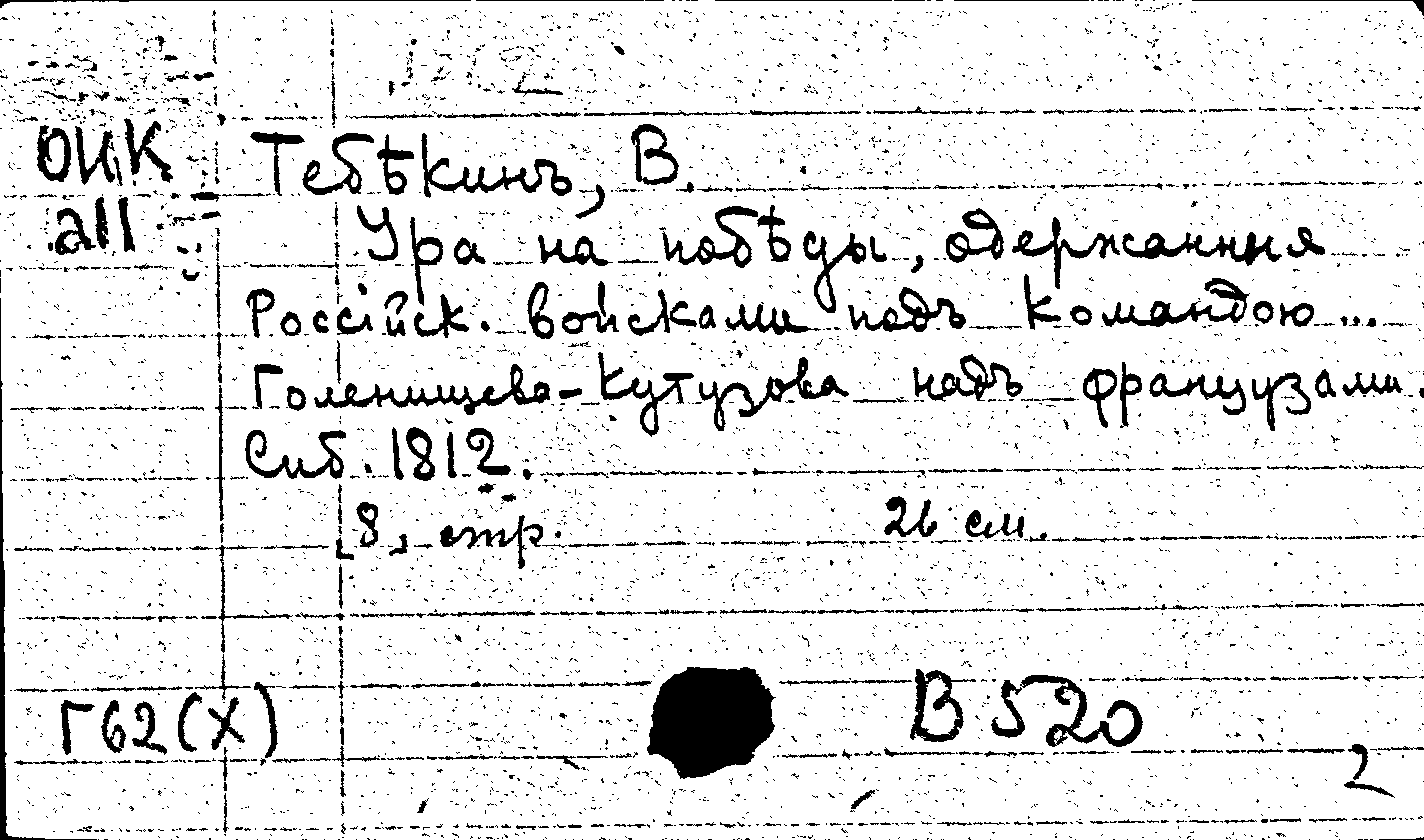 ОИК Тебѣкинъ, В.
all Ура на побѣды, одержанныя
Россійск. войсками подъ командою...
Голенищева-Кутузова надъ французами.
Спб. 1812.
[8] стр. 26 см.
Г62(X) В 520
2